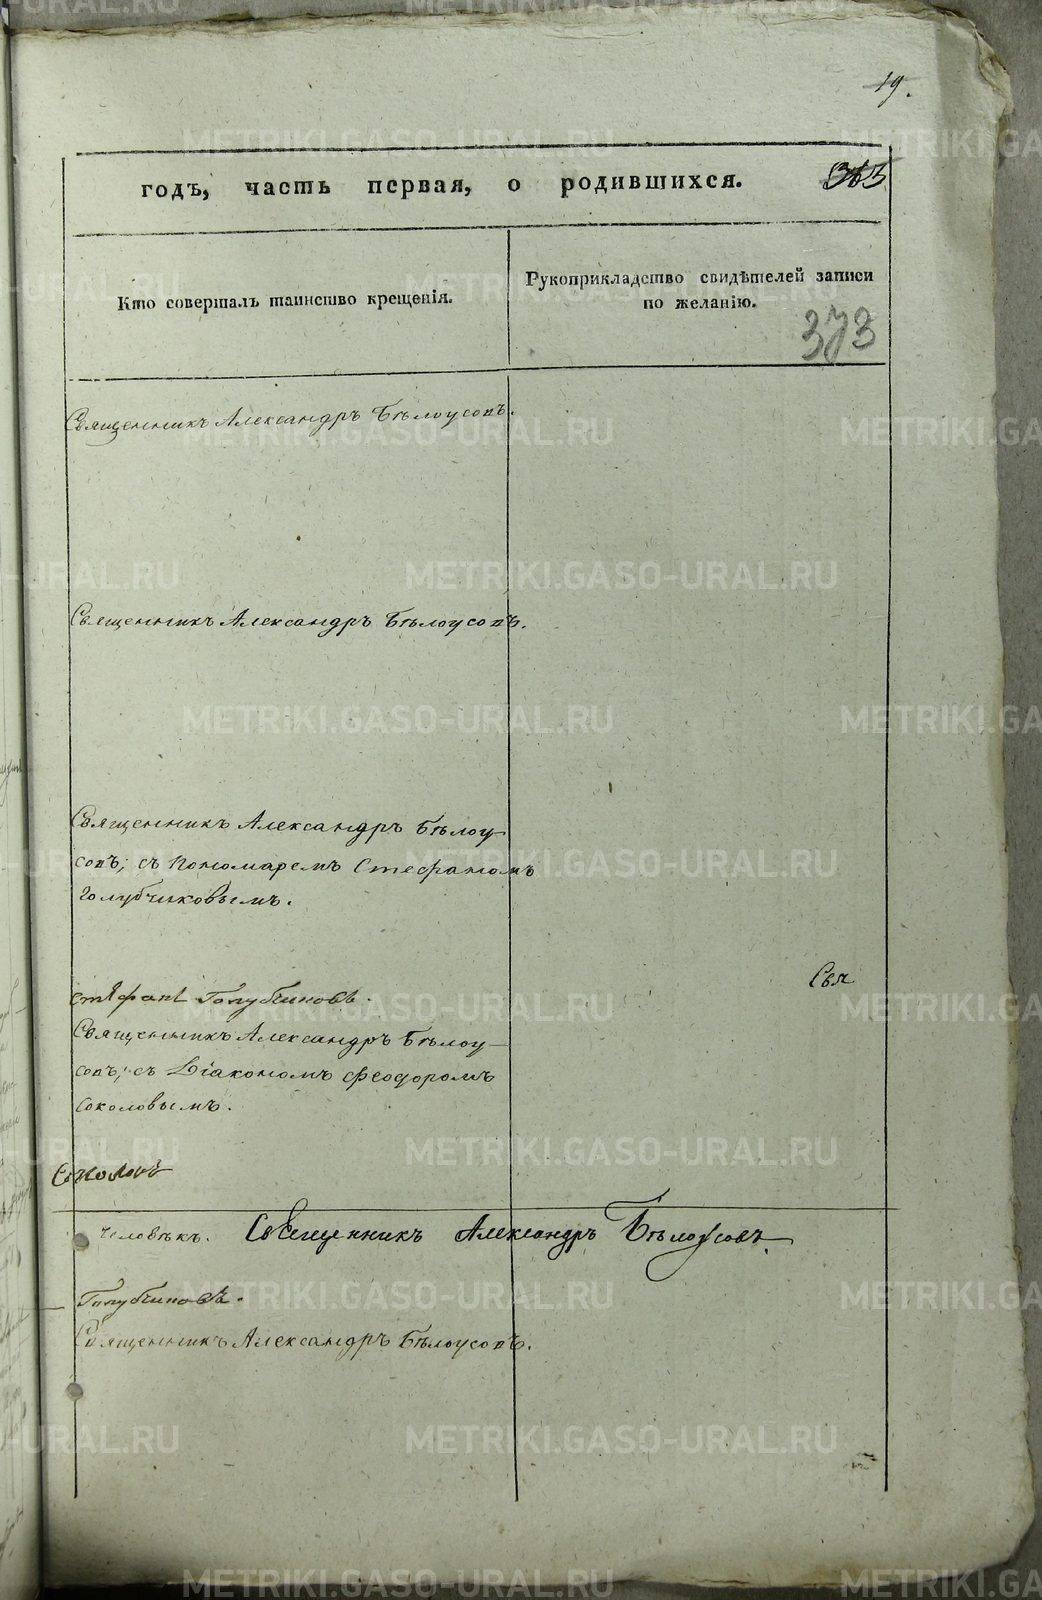 19.
годъ, часть первая, о родившихся.
365
Кто совершалъ таинство крещенія.
Рукоприкладство свидѣтелей записи
по желанію.
373
Священникъ Александръ Бѣлоусовъ.
Священникъ Александръ Бѣлоусовъ.
Священникъ Александръ Бѣлоу-
совъ; съ Пономаремъ Стефаномъ
Голубчиковымъ.
Свя
Голубчиковъ.
Священникъ Александръ Бѣлоу-
совъ; съ Діакономъ Феодоромъ
Соколовымъ.
Соколовъ
человѣкъ. Священникъ Александръ Бѣлоусовъ.
Голубчиковъ.
Священникъ Александръ Бѣлоусовъ.
METRIKI.GASO-URAL.RU